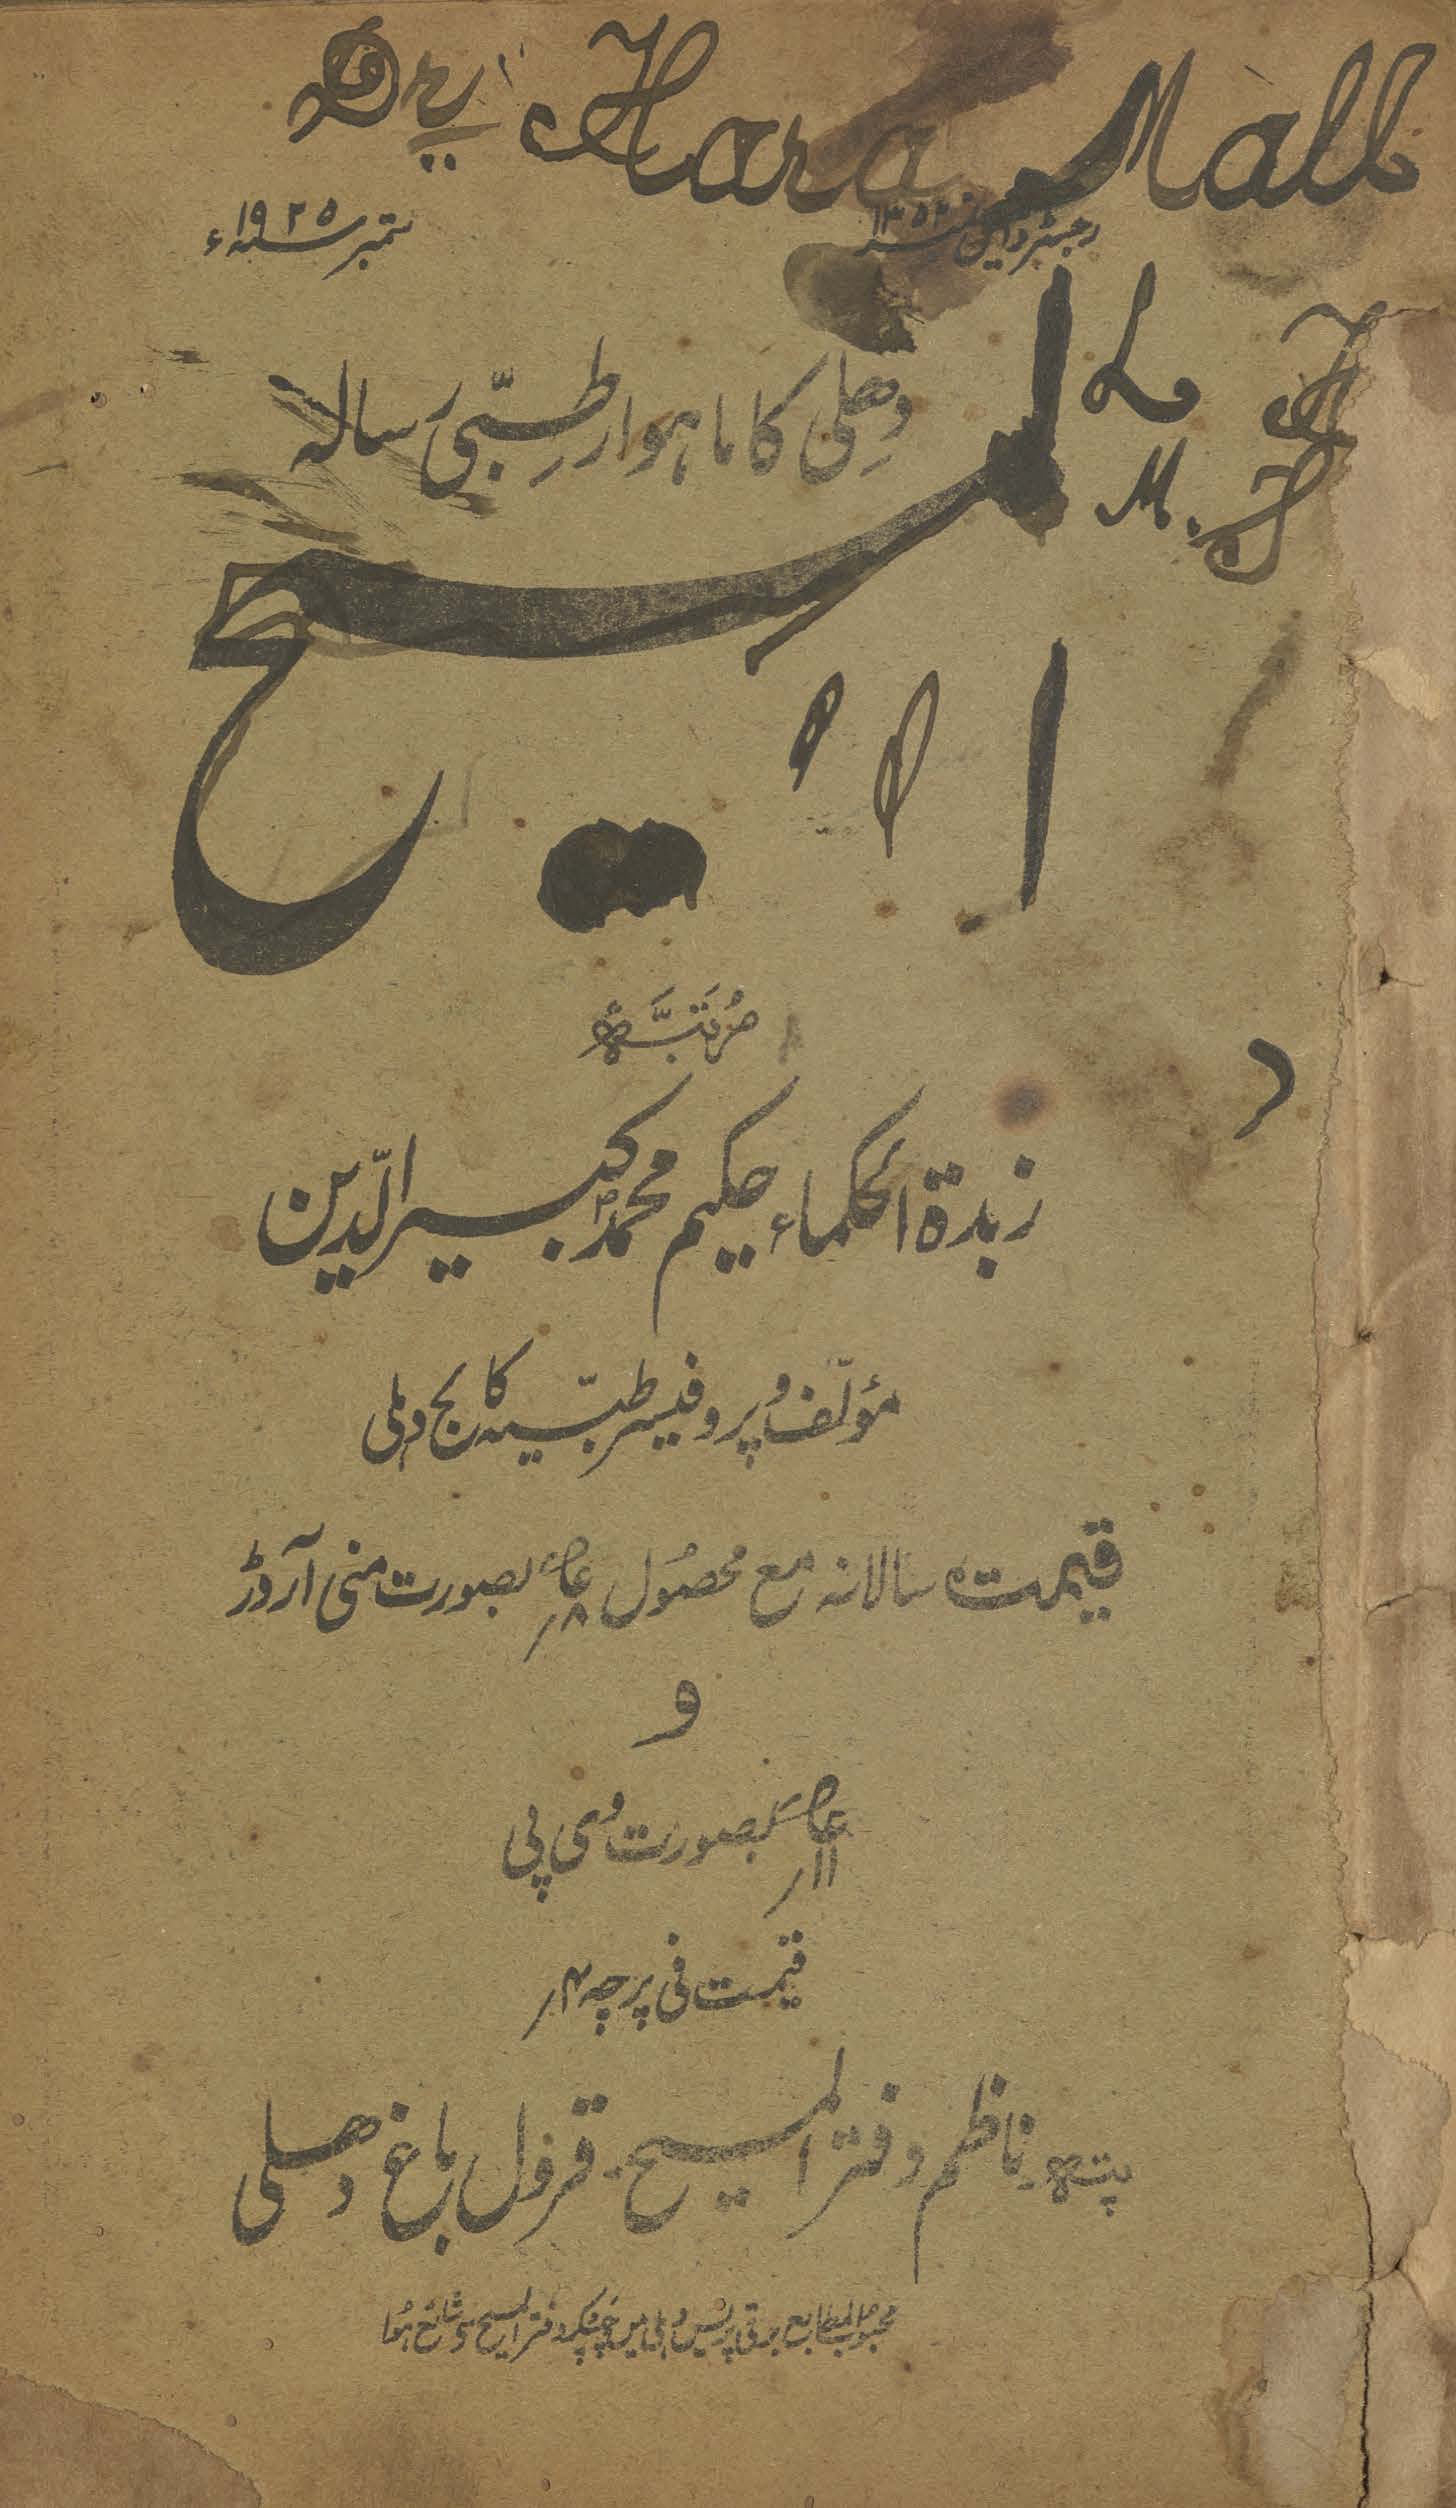 Hara Mall
ستمبر سنہ ۱۹۲۵ء
دھلی کا ماہوار طبّی رسالہ
L
M.
المسیح
مُرتَّبہ
زبدۃ الحکماء حکیم محمد کبیر الدّین
مؤلّف و پروفیسر طبّیہ کالج دہلی
قیمت سالانہ مع محصول بصورت منی آرڈر
و
بصورت وی پی
قیمت فی پرچہ ۴؍
پتہ۔ ناظم دفتر المسیح۔ قرول باغ دھلی
محبوب المطابع برقی پریس دہلی میں چھپکر دفتر المسیح سے شائع ہوا